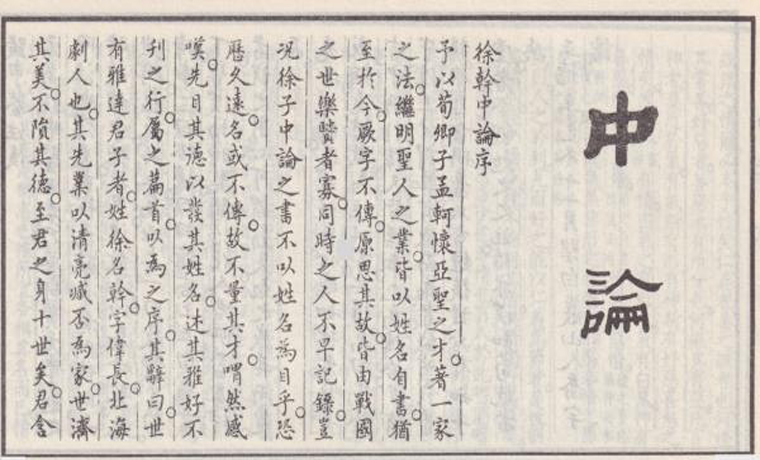 中論
徐幹中論序
予以荀卿子孟軻懷亞聖之才。著一家
之法。繼明聖人之業。皆以姓名自書。猶
至於今。厥字不傳。原思其故。皆由戰國
之世樂賢者寡。同時之人不早記錄。豈
況徐子中論之書不以姓名為目乎。恐
歷久遠。名或不傳。故不量其才。喟然感
嘆。先目其德以發其姓名。述其雅好不
刊之行。屬之篇首。以為之序。其辭曰。世
有雅達君子者。姓徐名幹。字偉長。北海
劇人也。其先業以清亮臧否為家。世濟
其美。不隕其德。至君之身十世矣。君含